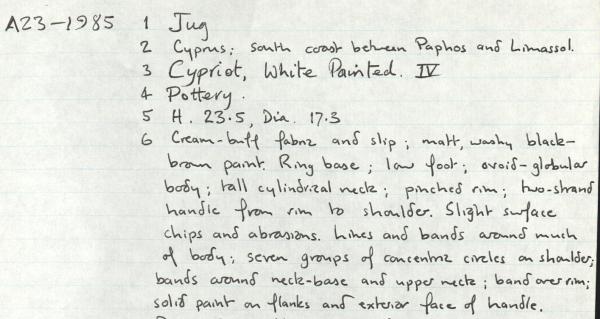 A23-1985 1 Jug
2 Cyprus; south coast between Paphos and Limassol.
3 Cypriot, White Painted. IV
4 Pottery.
5 H. 23.5, Dia. 17.3
6 Cream-buff fabric and slip; matt, washy black-
brown paint. Ring base; low foot; ovoid-globular
body; tall cylindrical neck; pinched rim; two-strand
handle from rim to shoulder. Slight surface
chips and abrasions. Lines and bands around much
of body; seven groups of concentric circles on shoulder;
bands around neck-base and upper neck; band over rim;
solid paint on flanks and exterior face of handle.